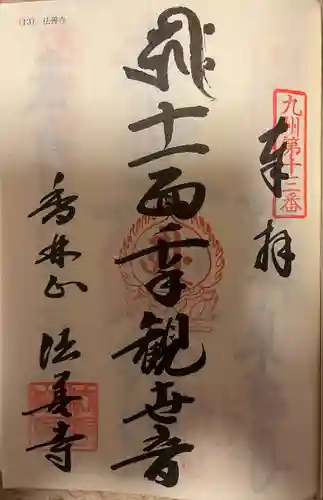 (13) 法善寺
九州第十三番
奉拝
十一面千手観世音
香林山
法善寺